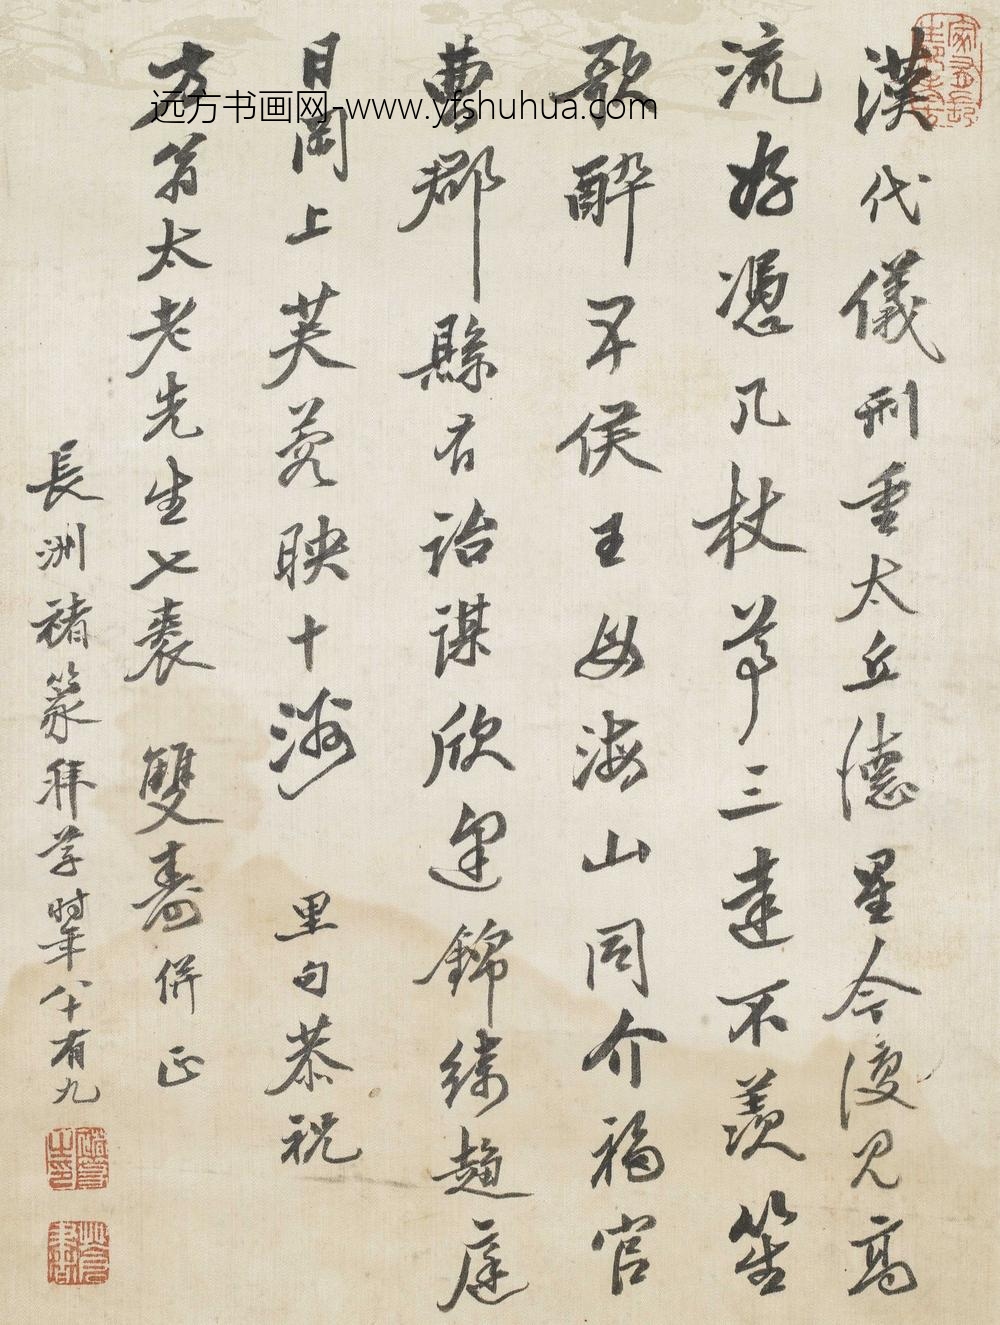 漢代儀刑重太丘德星今復見高
流好憑几杖尊三達不羨笙
歌醉五侯王母海山同介福官
曹郡縣有詒謀欣逢錦綵趨庭
日岡上芙蓉映十洲 里句恭祝
方翁太老先生七袠 雙壽併正
長洲褚篆拜草時年八十有九
远方书画网-www.yfshuhua.com